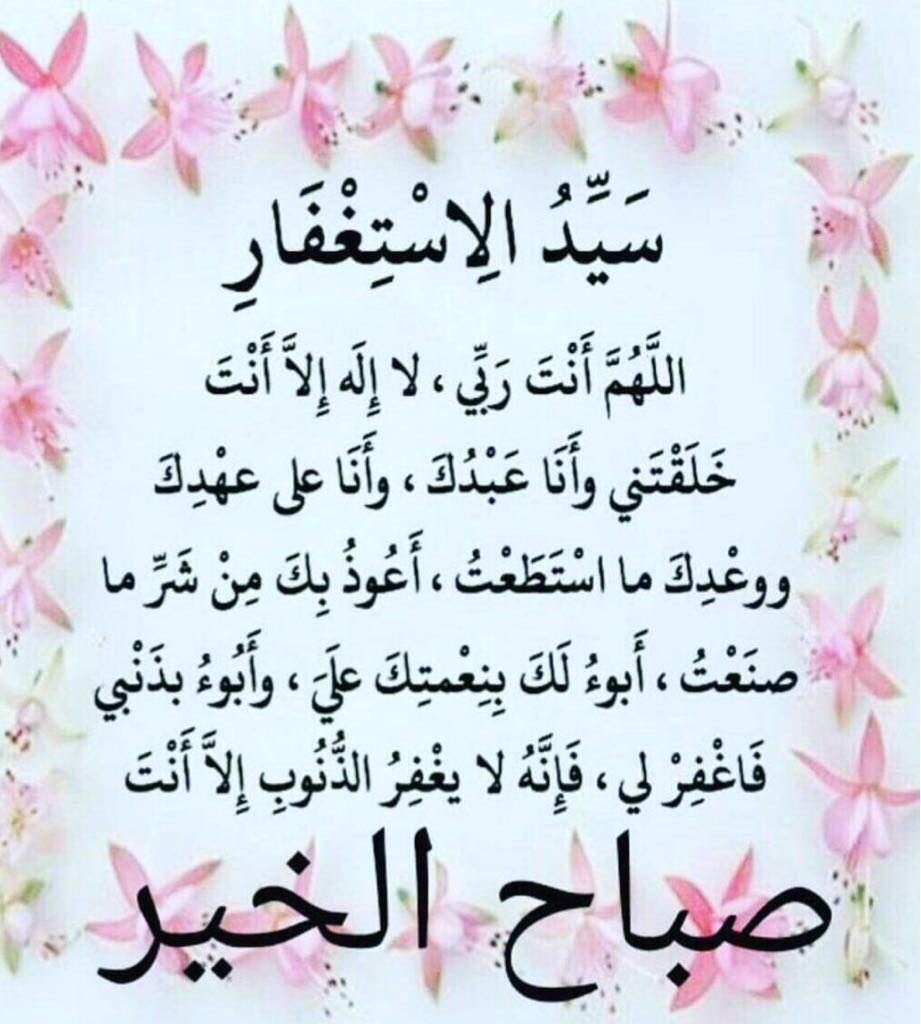 سَيِّدُ الِاسْتِغْفَارِ
اللَّهُمَّ أَنْتَ رَبِّي، لا إِلَه إِلاَّ أَنْتَ
خَلَقْتَني وأَنَا عَبْدُكَ، وأَنَا على عهْدِكَ
ووعْدِكَ ما اسْتَطَعْتُ، أَعُوذُ بِكَ مِنْ شَرِّ ما
صنَعْتُ، أَبوءُ لَكَ بِنِعْمتِكَ علَيَ، وأَبُوءُ بذَنْبي
فَاغْفِرْ لي، فَإِنَّهُ لا يغْفِرُ الذُّنُوبِ إِلاَّ أَنْتَ
صباح الخير